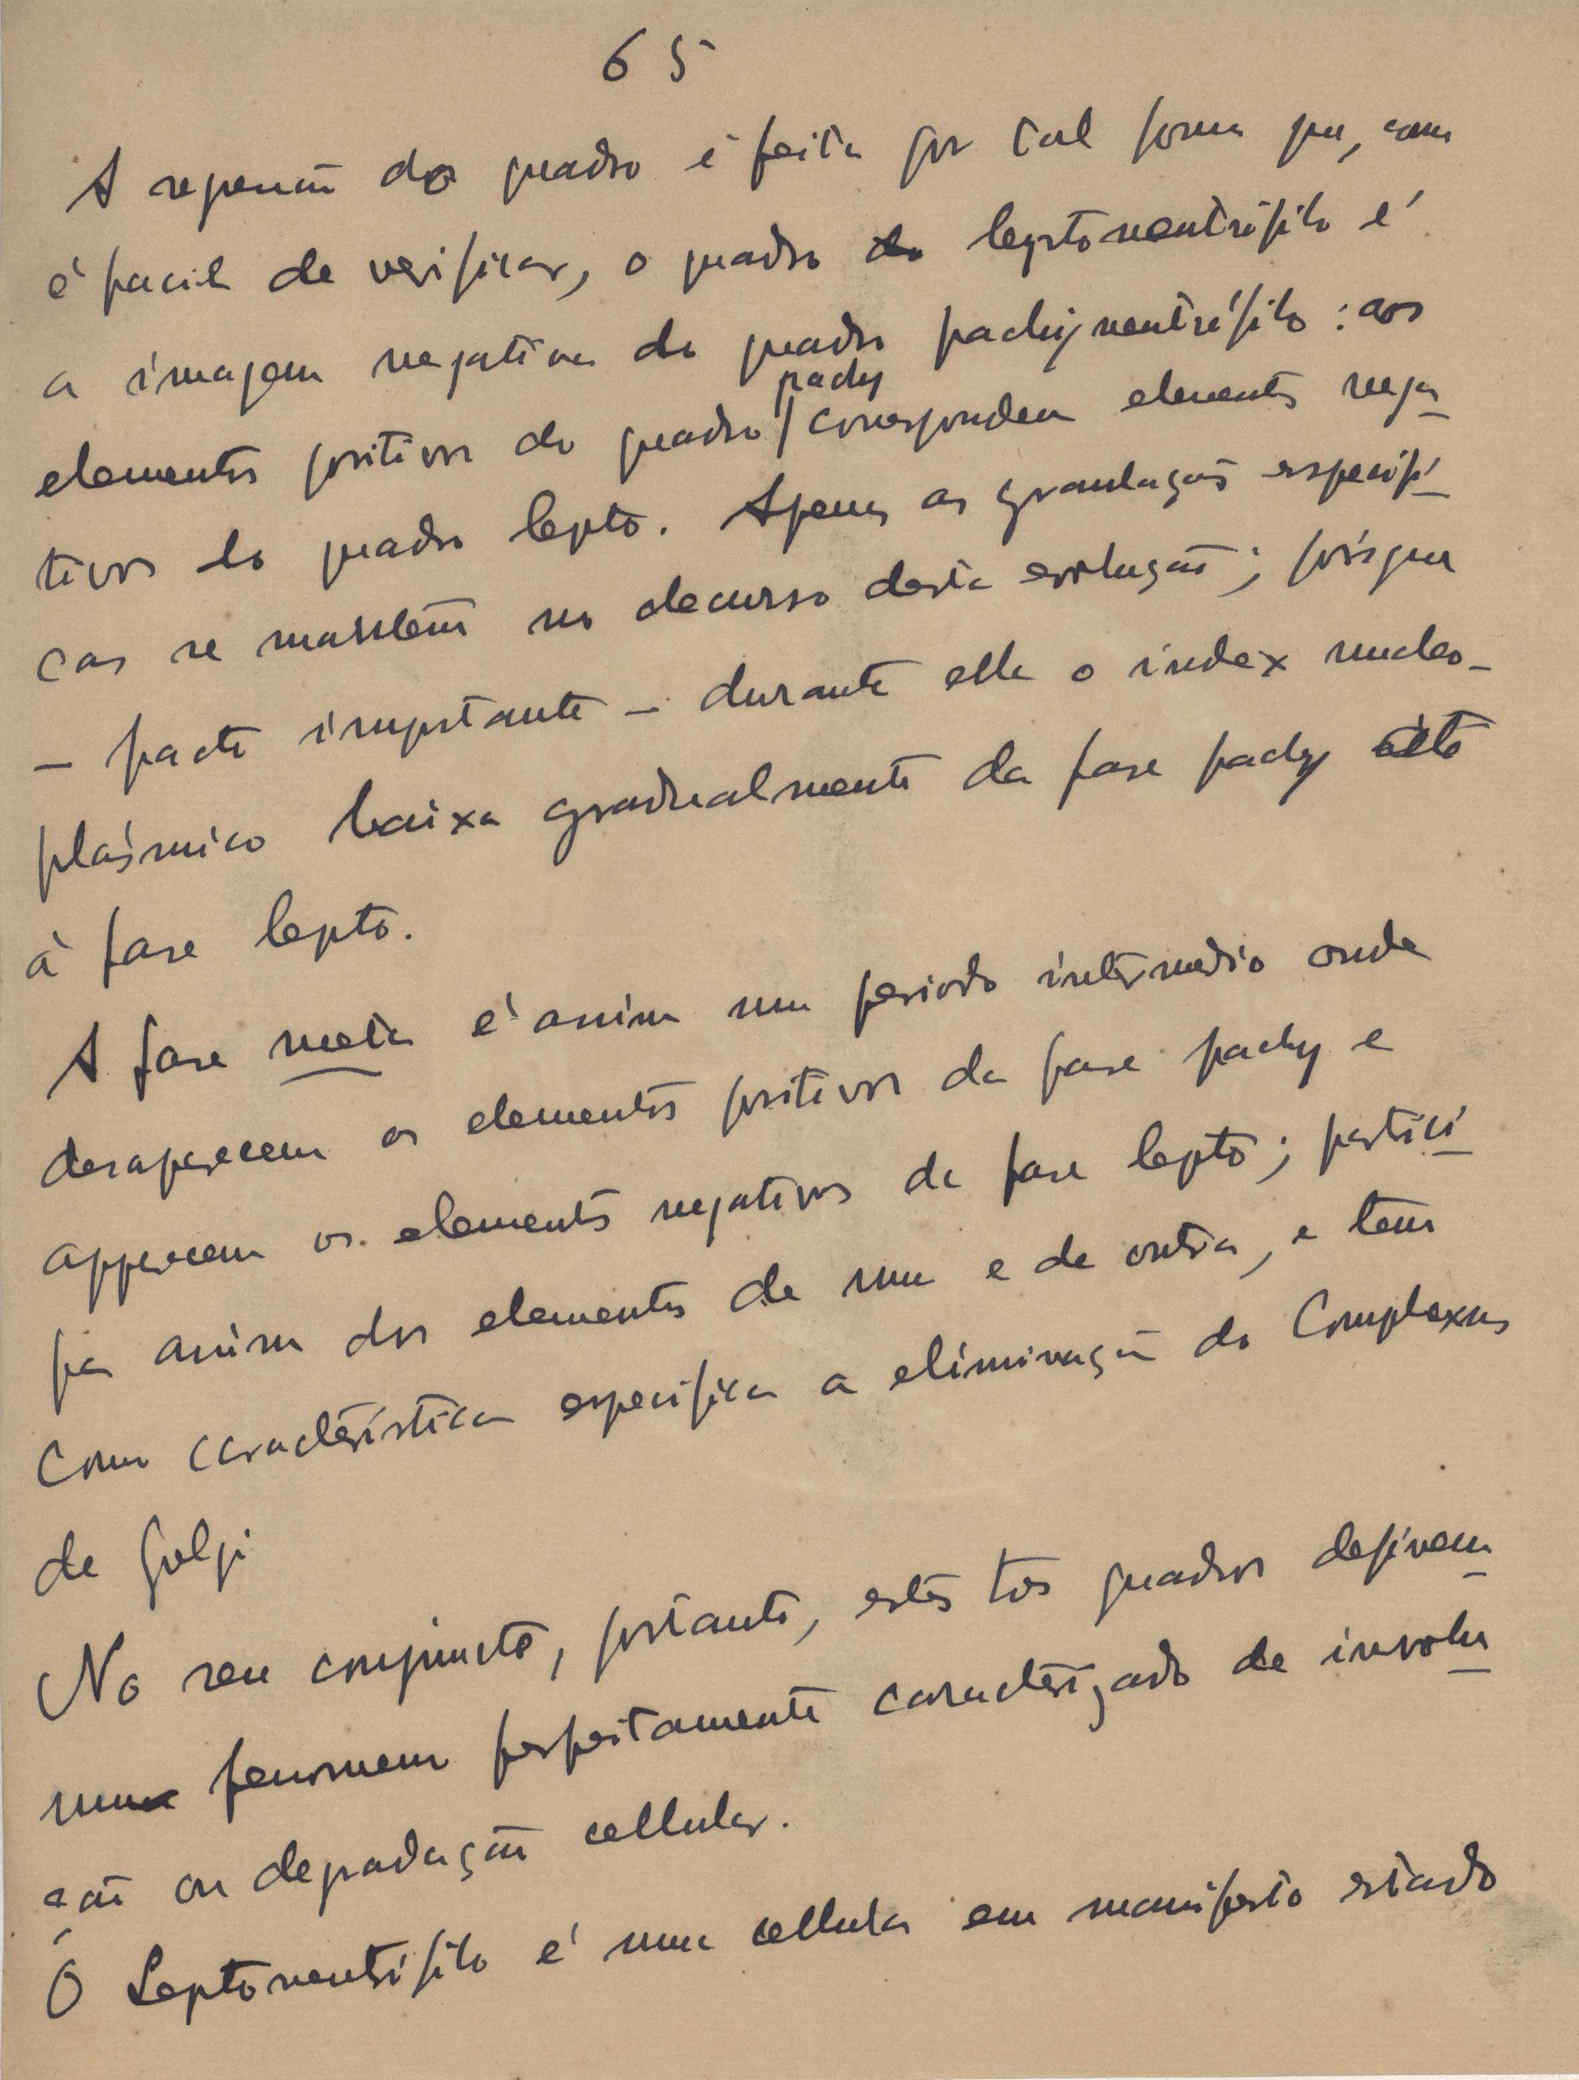 65
A repercusão do quadro é feita por tal forma que, como
é facil de verificar, o quadro do leptoneutrófilo é
a imagem negativa do quadro pachyneutrófilo: aos
elementos positivos do quadro pachy correspondem elementos nega
tivos do quadro lepto. Apenas as granulações especifi
cas se mantêm no decurso desta evolução; porque
– facto importante – durante ella o index nucleo-
plásmico baixa gradualmente da fase pachy
à fase lepto.
A fase meta é assim um periodo intermedio onde
desaparecem os elementos positivos da fase pachy e
apparecem os elementos negativos da fase lepto; partici
pa assim dos elementos de uma e de outra, e tem
como característica especifica a eliminação do Complexus
de Golgi
No seu conjuncto, portanto, estes tres quadros definem
um fenomeno perfeitamente caracterizado de involu
ção ou degradação cellular.
O Leptoneutrófilo é uma cellula em manifesto estado